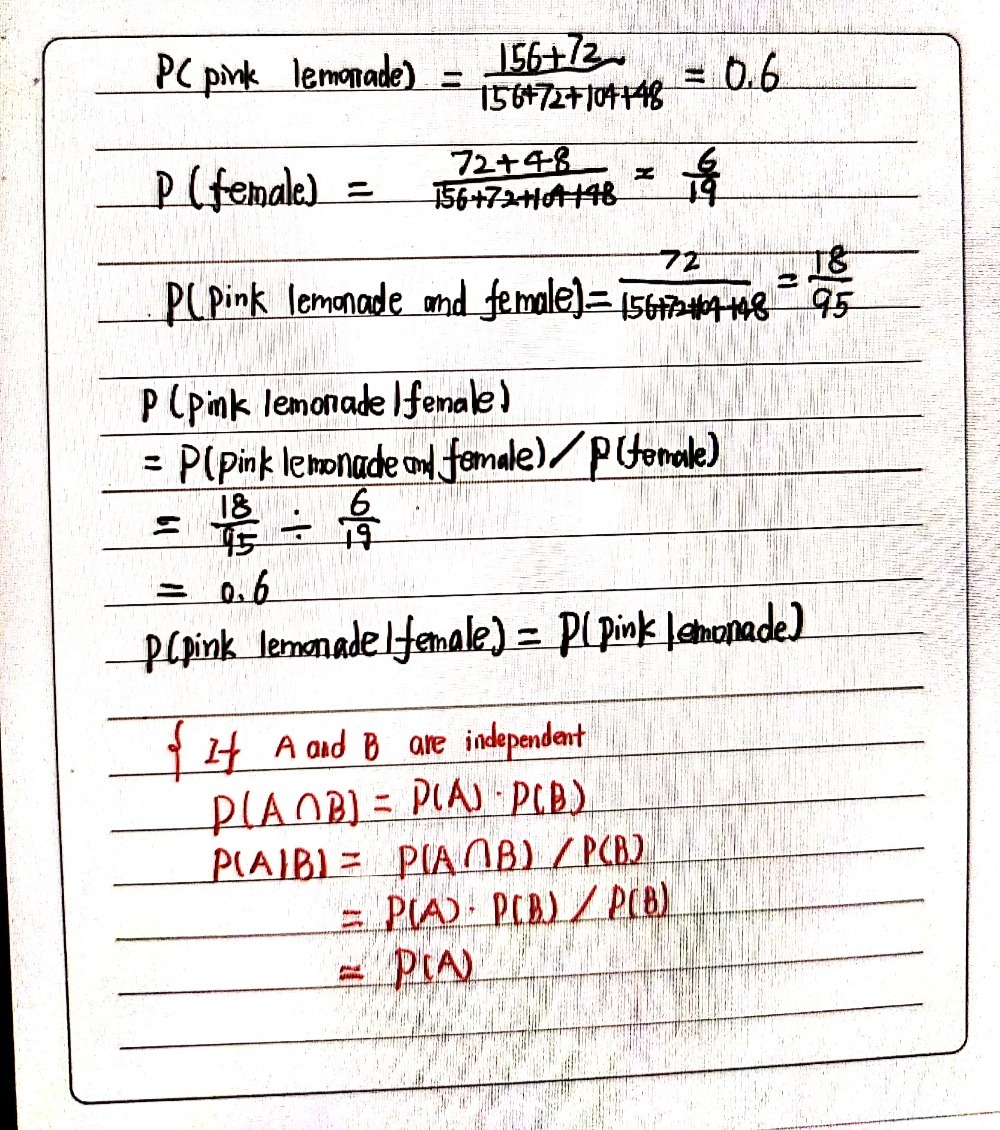 P(pink lemonade) = (156+72)/(156+72+104+48) = 0.6
P(female) = (72+48)/(156+72+104+48) = 6/19
P(pink lemonade and female) = 72/(156+72+104+48) = 18/95
P(pink lemonade|female)
= P(pink lemonade and female) / P(female)
= 18/95 ÷ 6/19
= 0.6
P(pink lemonade|female) = P(pink lemonade)
{ If A and B are independent
P(A∩B) = P(A)·P(B)
P(A|B) = P(A∩B) / P(B)
= P(A)·P(B) / P(B)
= P(A)